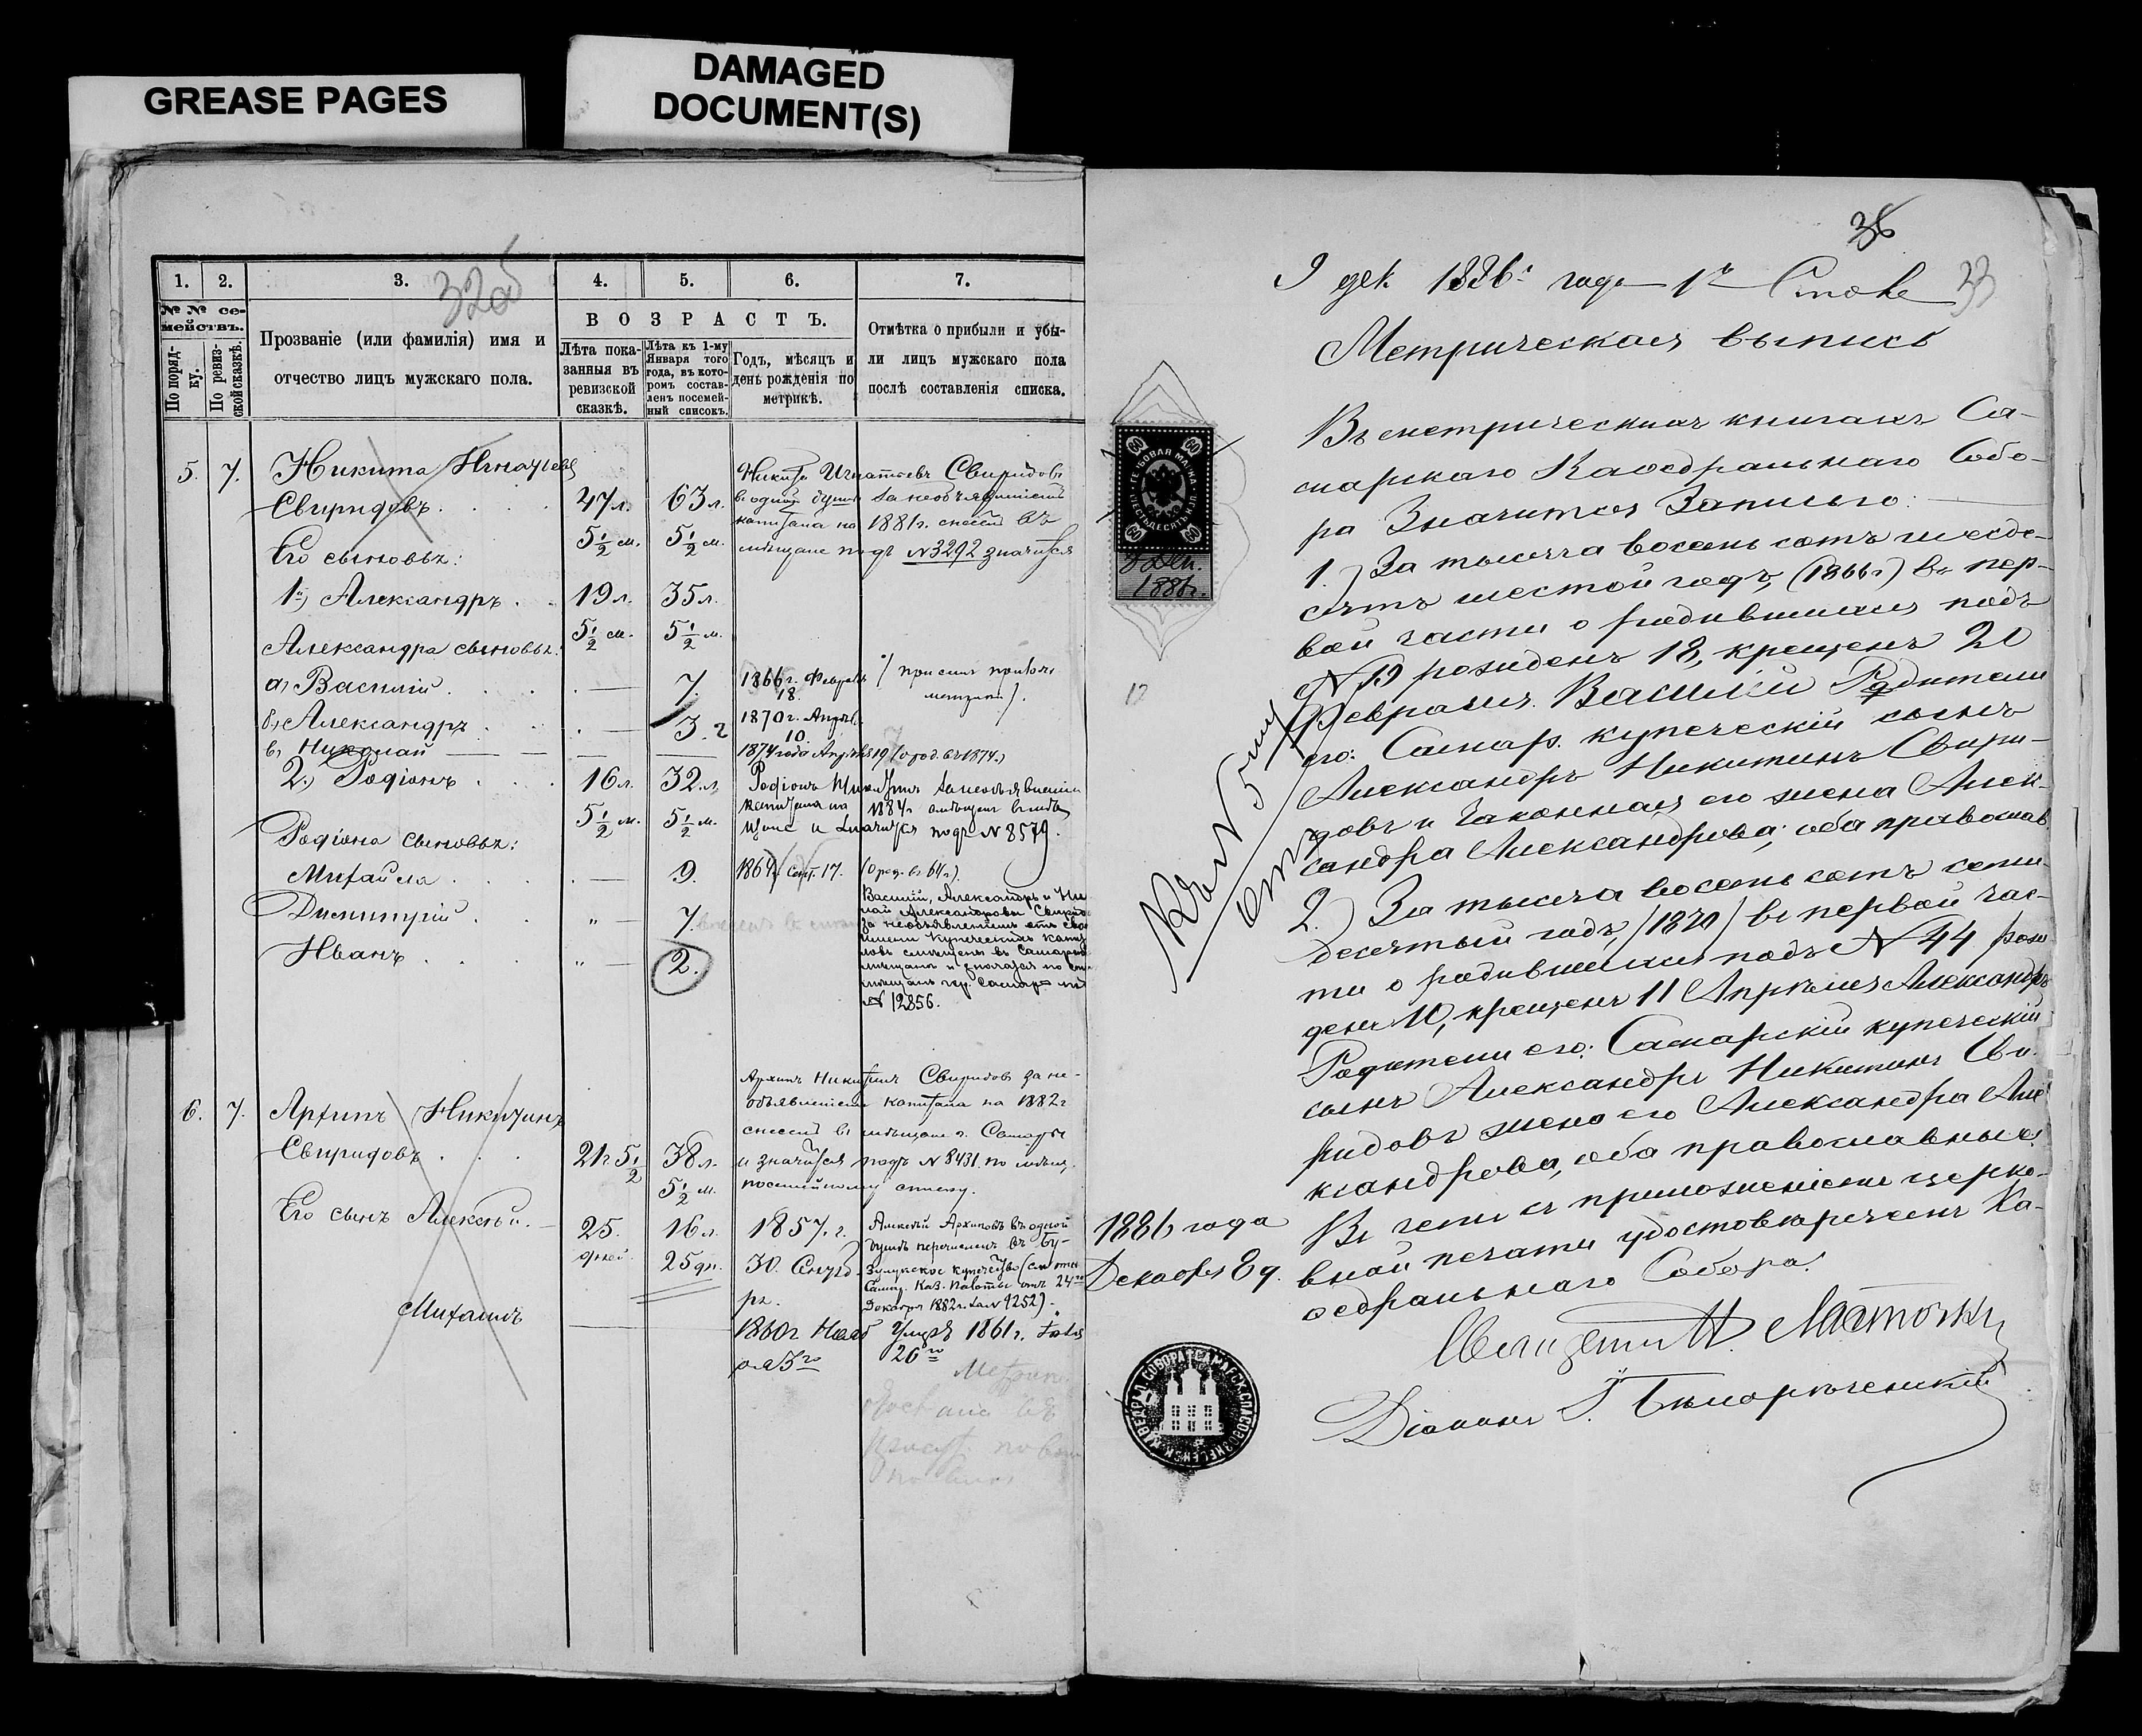 GREASE PAGES
DAMAGED
DOCUMENT(S)
32об
1. 2. 3. 4. 5. 6. 7.
№№ се-
мействъ.
По поряд-
ку.
По ревиз-
ской сказкѣ.
Прозваніе (или фамилія) имя и
отчество лицъ мужскаго пола.
ВОЗРАСТЪ.
Лѣта пока-
занныя въ
ревизской
сказкѣ.
Лѣта къ 1-му
Января того
года, въ кото-
ромъ состав-
ленъ посемей-
ный списокъ.
Годъ, мѣсяцъ и
день рожденія по
метрикѣ.
Отмѣтка о прибыли и убы-
ли лицъ мужскаго пола
послѣ составленія списка.
5. 7. Никита Игнатьевъ
Свиридовъ. 47 л. 63 л.
5½ м. 5½ м.
Никита Игнатьевъ Свиридовъ
въ одной душѣ за необъявленіемъ
капитала на 1881 г. снесенъ въ
мѣщане подъ №3292 значится
Его сыновья:
1й) Александръ. 19 л. 35 л.
5½ м. 5½ м.
Александра сыновья:
а) Василій. — 7. 1866 г. Февраля
18.
б) Александръ. — 3. г 1870 г. Апрѣл.
10.
в) Николай — — 1874 года Апрѣля 19 (о род. въ 1874.)
2.) Родіонъ. 16 л. 32 л.
5½ м. 5½ м.
Родіонъ Никитинъ за необъявленіемъ
капитала на 1884 г.
и значится подъ №8579.
Родіона сыновья:
Михаила. — 9. 1864 г. Сент. 17.
Димитрій. „ — 7.
Иванъ. „ — 2.
Василій, Александръ и Ни-
лай Александровы Свирид
за необъявленіемъ отъ сво
имени купеческихъ капит
№ 12856.
6. 7. Архипъ Никитинъ
Свиридовъ. 21 г 5½ 38 л.
5½ м.
Архипъ Никитинъ Свиридовъ за не-
объявленіемъ капитала на 1882 г
снесенъ въ мѣщане г. Самары
и значится подъ №8431 по мѣщ.
посемейному списку.
Его сынъ Алексѣй. 25. 16 л. 1857. г.
дней. 25 дн. 30. Сентяб-
ря.
Алексѣй Архиповъ въ одной
душѣ перечисленъ въ Бу-
зулукское купечество (см отн
Самар. Каз. Палаты отъ 24го
Декабря 1882 г. за №9252).
Михаилъ — 1860 г Нояб
ря 5го
Умеръ 1861 г.
26го
36
33
9 дек 1886 года 1й Столъ
Метрическая выпись
Въ метрическихъ книгахъ Са-
марскаго Каѳедральнаго Собо-
ра Значится Записью:
1.) За тысяча восемь сотъ шесде-
сятъ шестой годъ, (1866 г) въ пер-
вой части о родившихся подъ
№ 19 рожденъ 18, крещенъ 20
Февраля. Василій Родители
его: Самар. купеческій сынъ
Александръ Никитинъ Свири-
довъ и Законная его жена Алек-
сандра Александрова; оба православ.
2.) За тысяча восемь сотъ семи-
десятый годъ, (1870) въ первой час-
ти о родившихся подъ № 44 рож
денъ 10, крещенъ 11 Апрѣля Александръ
Родители его: Самарскій купеческій
сынъ Александръ Никитинъ Сви-
ридовъ жена его Александра Але
ксандрова, оба православные.
Въ чемъ съ приложеніемъ церко-
вной печати удостовѣряемъ Ка-
ѳедральнаго Собора.
1886 года
Декабря 8 д.
Діаконъ І. Бѣлорѣченскій
60 60
ГЕРБОВАЯ МАРКА
ШЕСТЬДЕСЯТЪ КОП.
60 60
8 Дек.
1886 г.